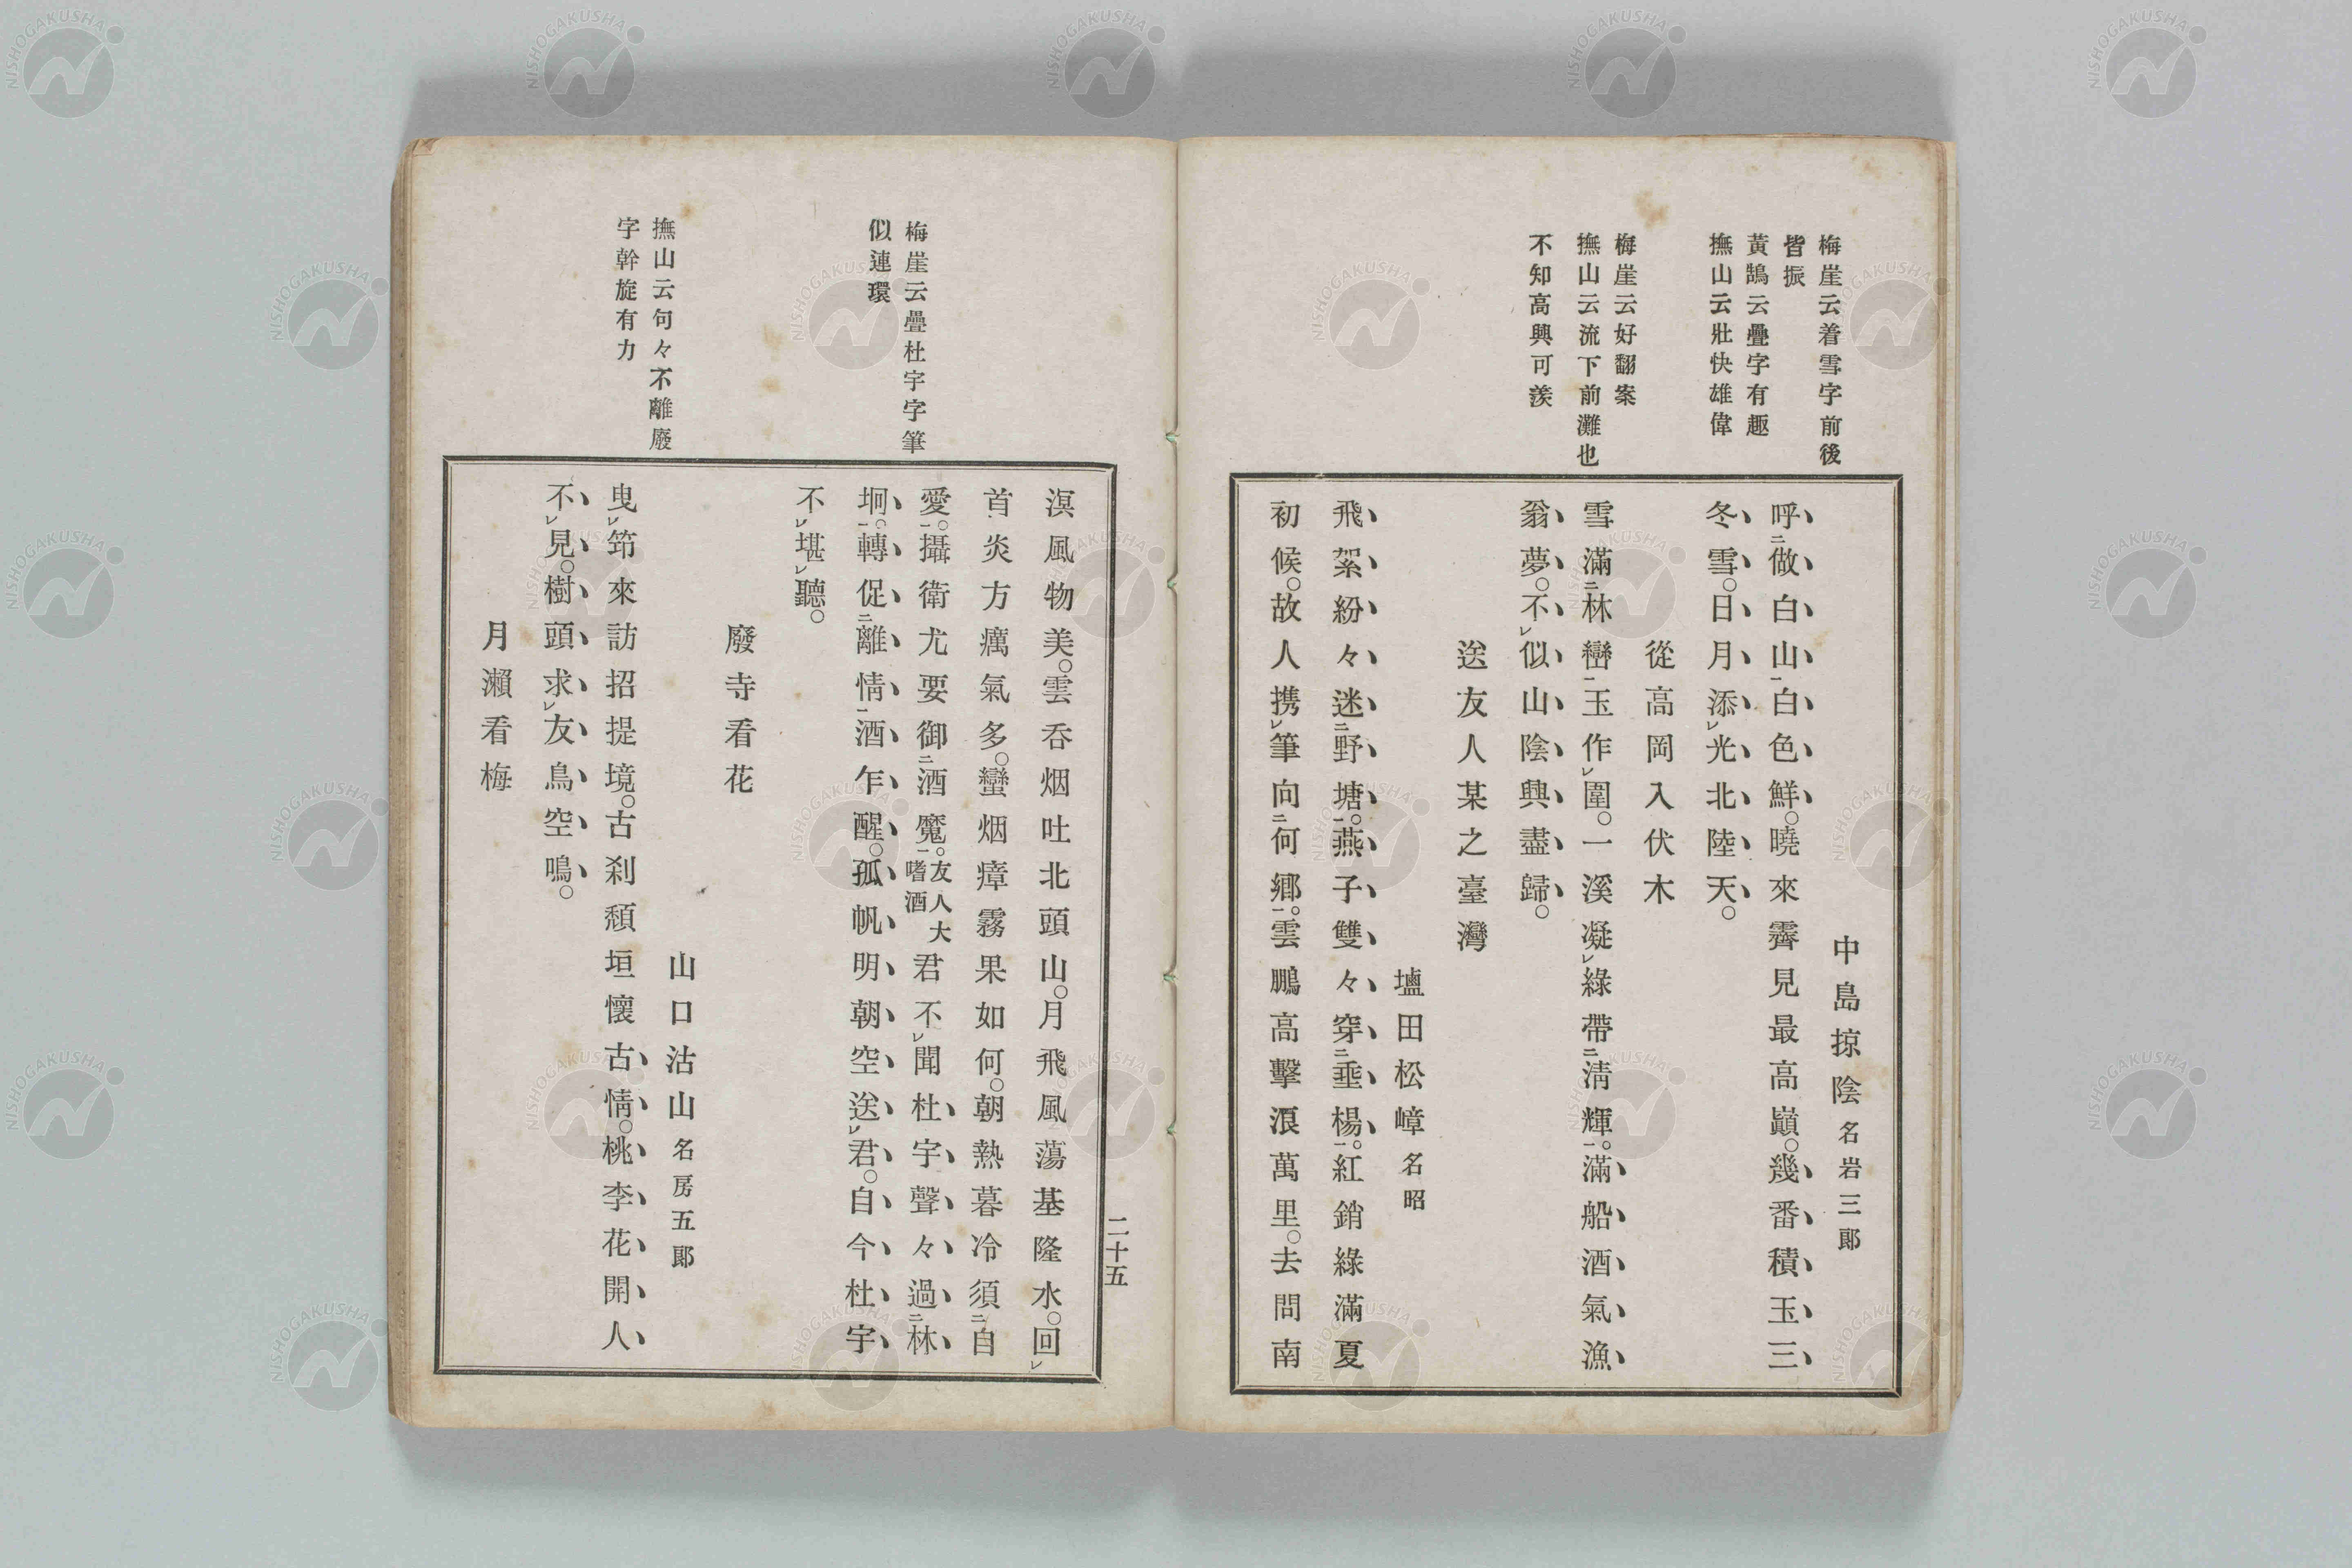 梅崖云着雪字前後
皆振
黃鵠云疊字有趣
撫山云壯快雄偉
梅崖云好翻案
撫山云流下前灘也
不知高興可羨
中島掠陰名岩三郎
呼二做白山一白色鮮。曉來霽見最高巓。幾番積玉三
冬雪。日月添レ光北陸天。
從高岡入伏木
雪滿二林巒一玉作レ圍。一溪凝レ綠帶二淸輝一。滿船酒氣漁
翁夢。不レ似山陰興盡歸。
送友人某之臺灣
壚田松嶂名昭
飛絮紛々迷二野塘一。燕子雙々穿二垂楊一。紅銷綠滿夏
初候。故人携レ筆向二何鄕一。雲鵬高擊浪萬里。去問南
梅崖云疊杜宇字筆
似連環
撫山云句々不離廢
字幹旋有力
溟風物美。雲呑烟吐北頭山。月飛風蕩基隆水。回レ
首炎方癘氣多。蠻烟瘴霧果如何。朝熱暮冷須二自
愛一。攝衛尤要御二酒魔一。友人大嗜酒君不レ聞杜宇聲々過二林
坰一。轉促二離情一酒乍醒。孤帆明朝空送レ君。自今杜宇
不レ堪レ聽。
廢寺看花
山口沽山名房五郎
曳レ筇來訪招提境。古刹頽垣懷古情。桃李花開人
不レ見。樹頭求レ友鳥空鳴。
月瀨看梅
二十五
NISHOGAKUSHA